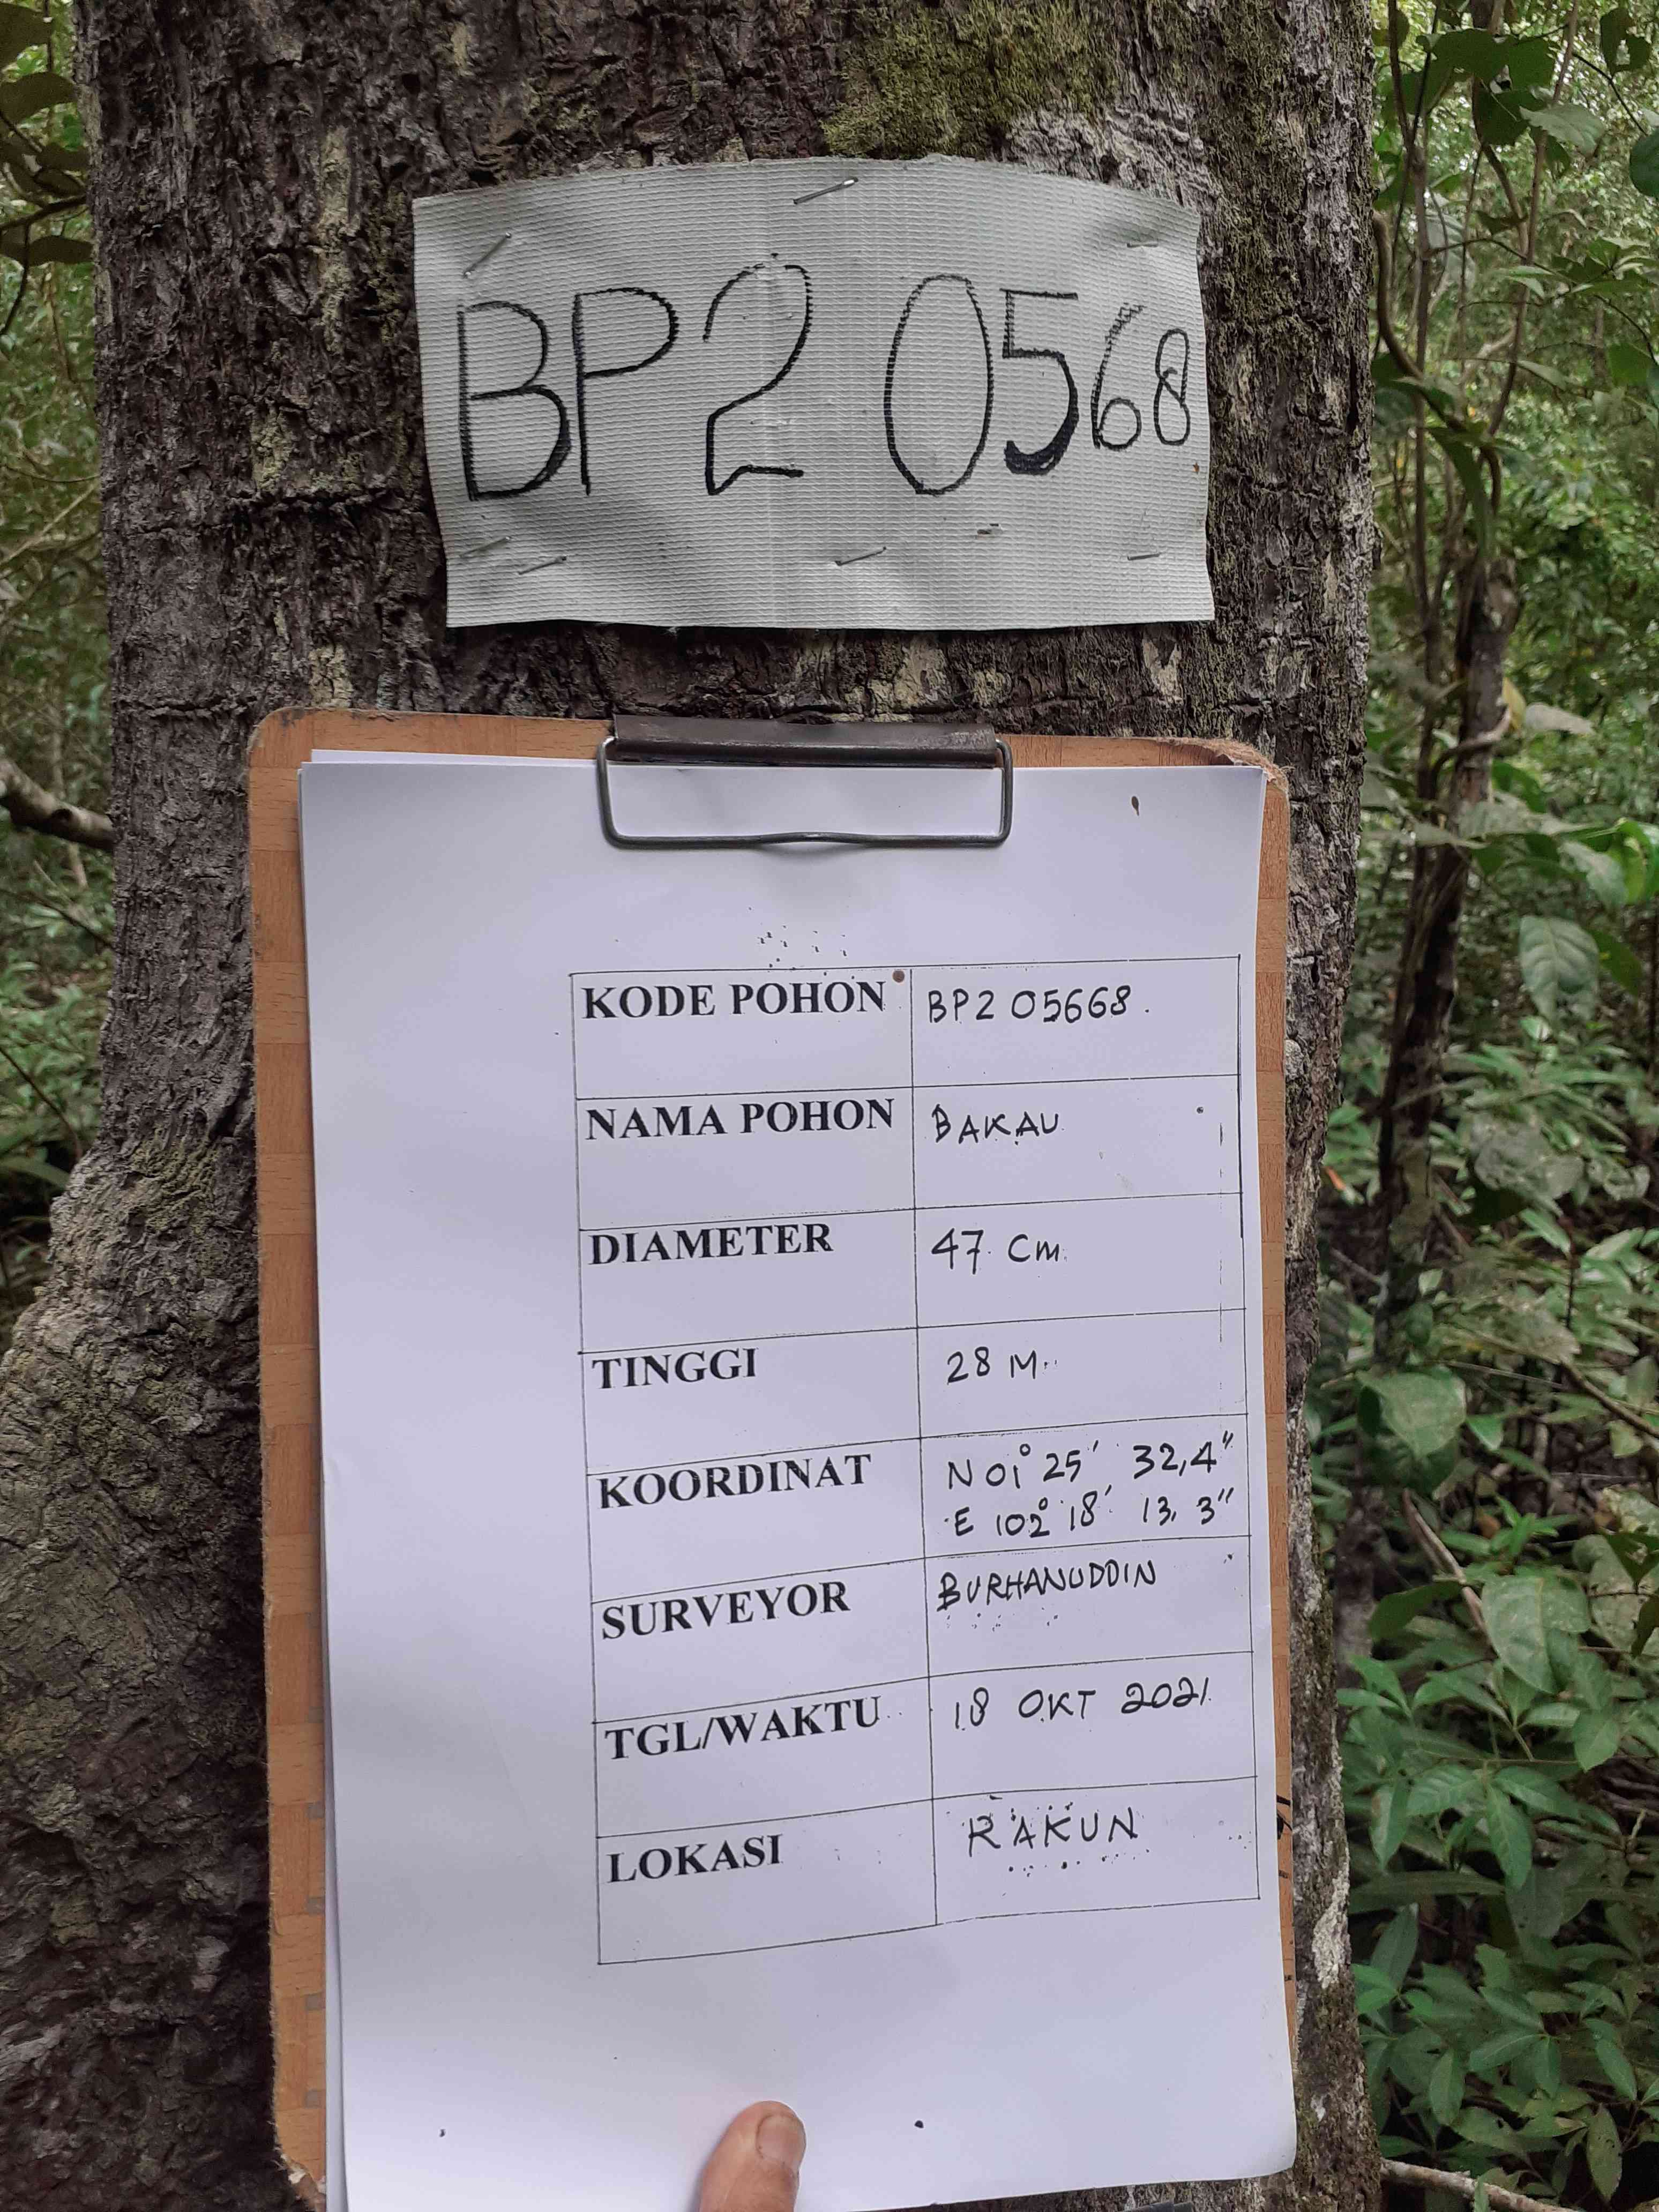 BP2 0568
KODE POHON BP2 05668.
NAMA POHON BAKAU
DIAMETER 47 Cm
TINGGI 28 M
KOORDINAT N 01° 25' 32,4"
E 102° 18' 13,3"
SURVEYOR BURHANUDDIN
TGL/WAKTU 18 OKT 2021
LOKASI RAKUN